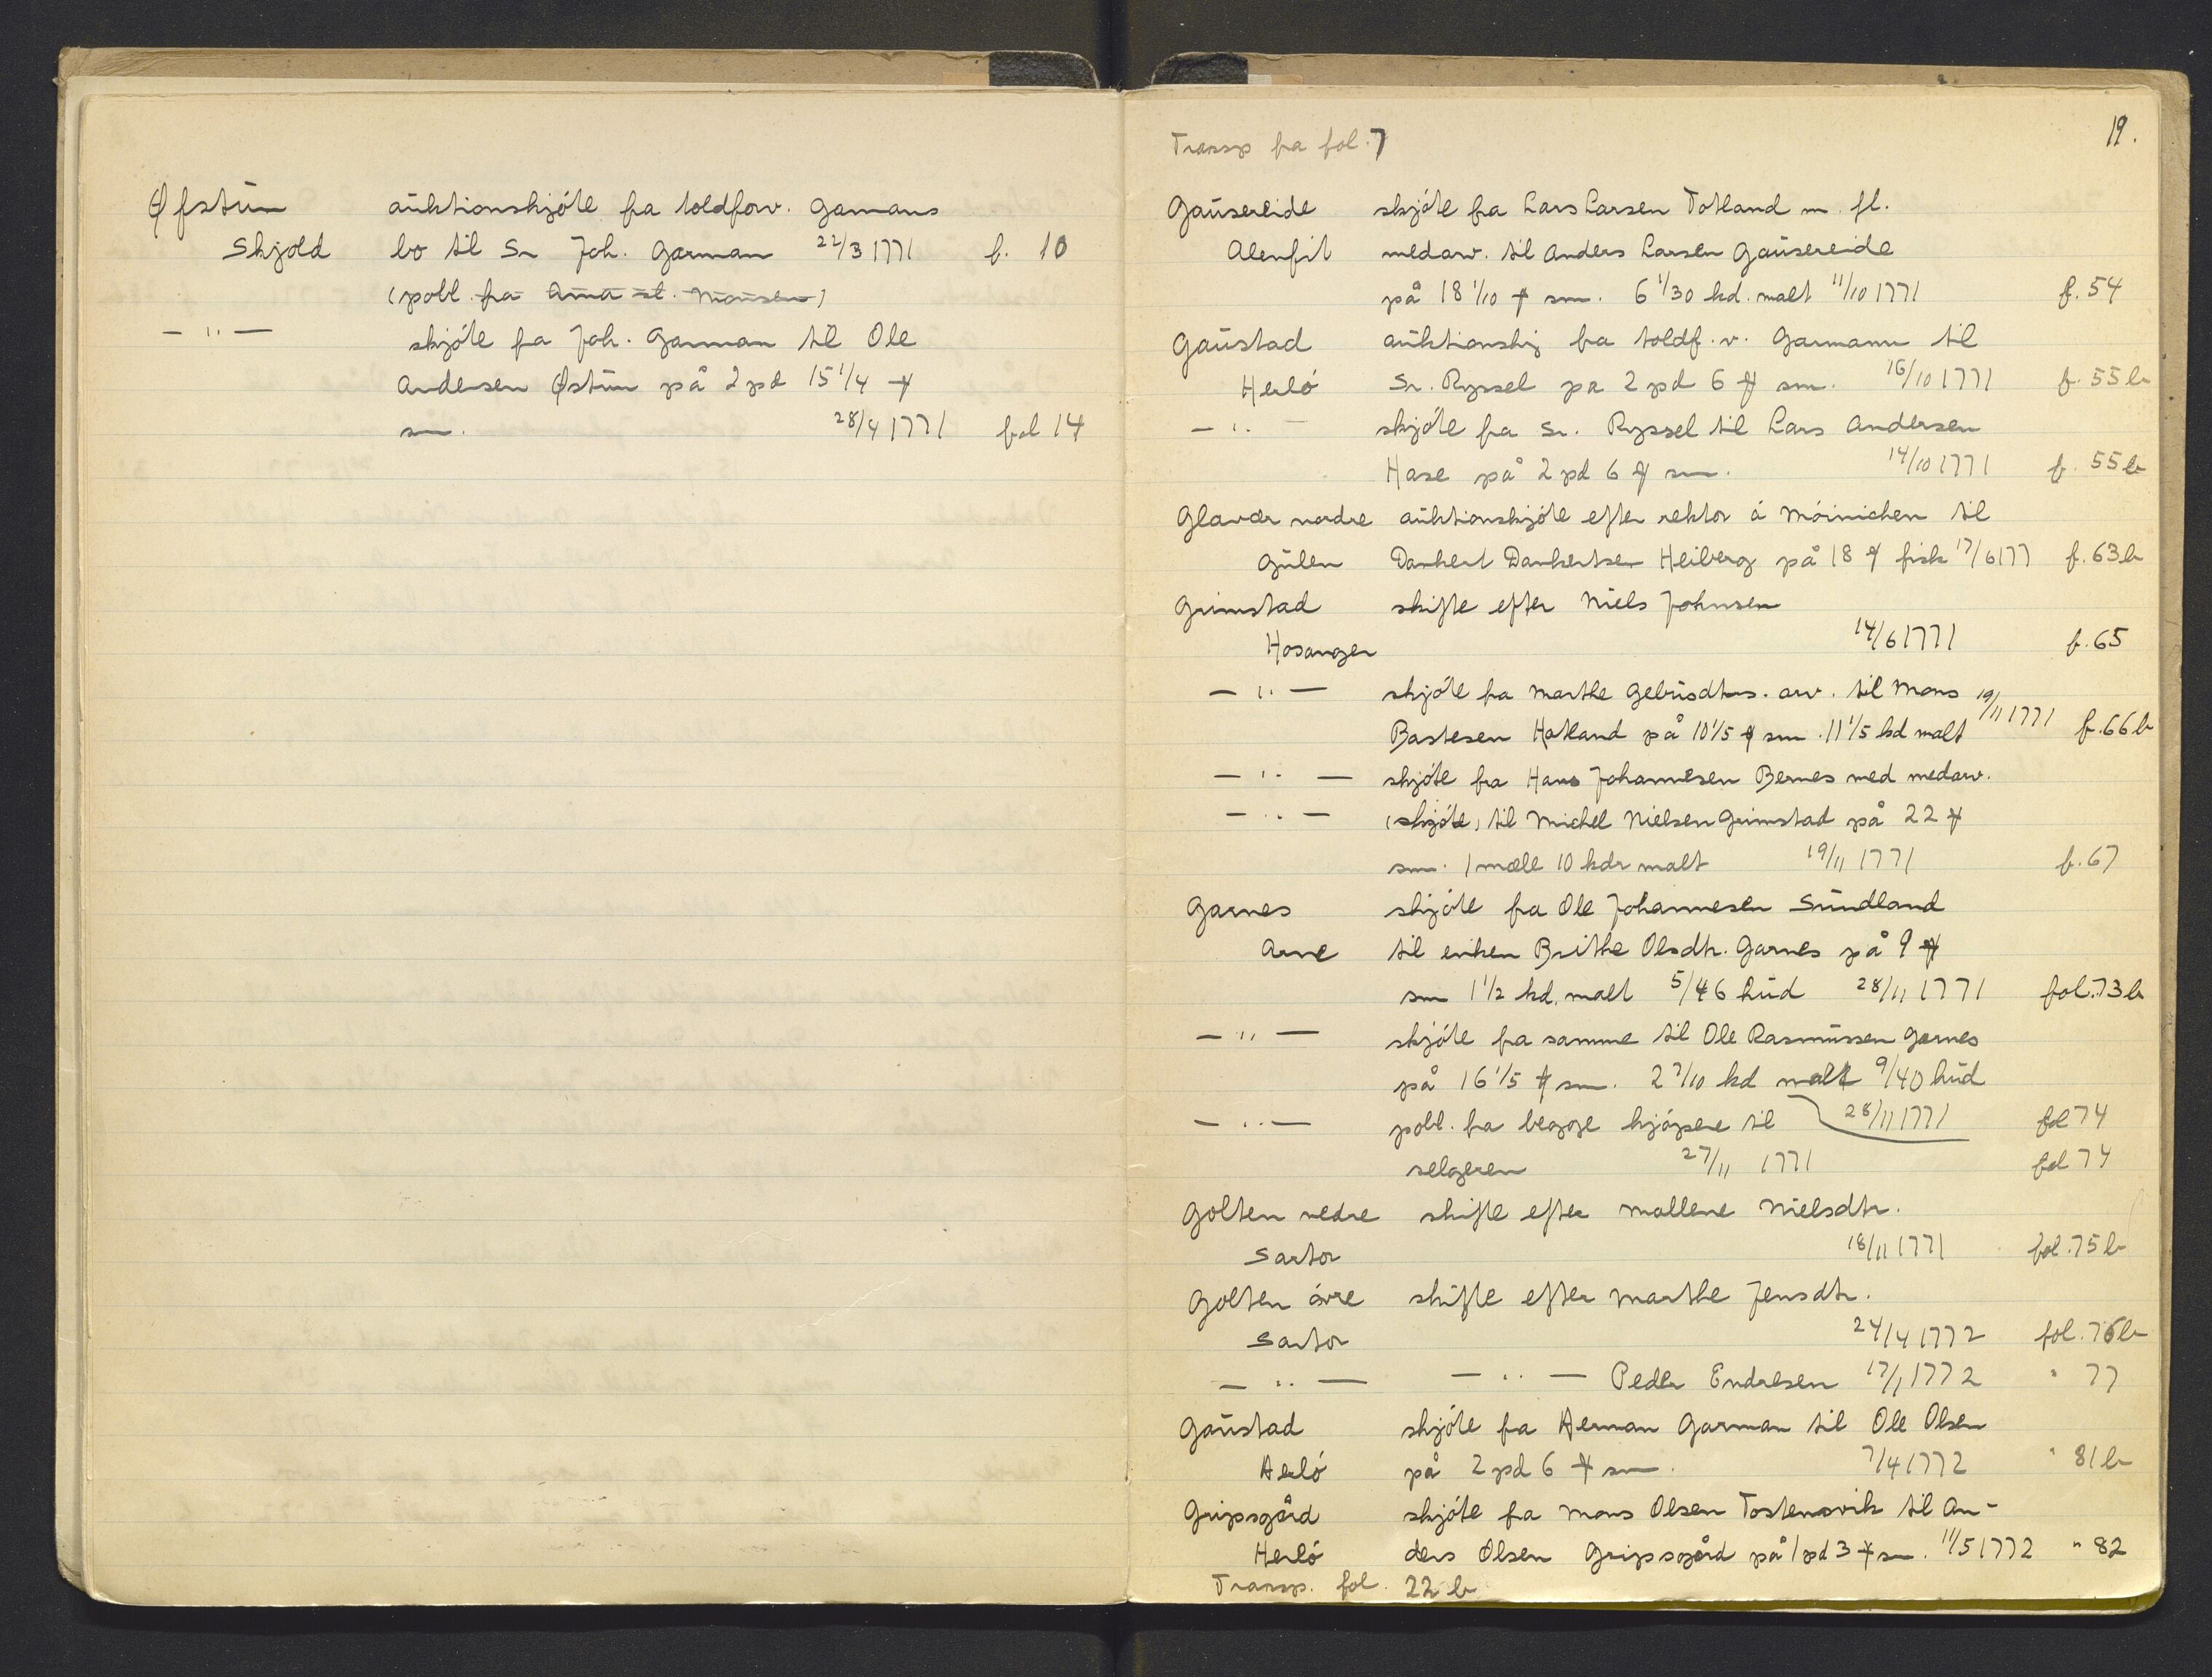 Øfstün auktionskjöte fra toldforv. Gamans
Skjold bo til Sr Joh. Garman 22/3 1771 f. 10
(pobl. fra Ama st. Monsen)
- " - skjöte fra Joh. Garman til Ole
Andersen Østün på 2 pd 15 1/4 ℔
sm. 28/4 1771 fol 14
19.
Transp fra fol. 7
Gaüsereide skjöte fra Lars Larsen Totland m. fl.
Alenfit medarv. til Anders Larsen Gaüsereide
på 18 1/10 ℔ sm. 6 1/30 kd. malt 11/10 1771 f. 54
Gaüstad aüktionskj fra toldf.v. Garmann til
Herlö Sr. Ryssel pa 2 pd 6 ℔ sm. 16/10 1771 f. 55 b
- " - skjöte fra Sr. Ryssel til Lars Andersen
Hase på 2 pd 6 ℔ sm. 14/10 1771 f. 55 b
Glavær nordre aüktionskjöte efter rektor á Möinichen til
Gülen Dankert Dankertsen Heiberg på 18 ℔ fisk 17/6 177 f. 63 b
Grimstad skifte efter Niels Johnsen
Hosanger 14/6 1771 f. 65
- " - skjöte fra Marthe Gebrüsdtrs. arv. til Mons
Bastesen Hatland på 10 1/5 ℔ sm. 11 1/5 kd malt 19/11 1771 f. 66 b
- " - skjöte fra Hans Johannesen Bernes med medarv.
- " - (skjöte) til Michel Nielsen Grimstad på 22 ℔
sm. 1 mæle 10 kdr malt 19/11 1771 f. 67
Garnes skjöte fra Ole Johannesen Sündland
Arne til enken Brithe Olsdtr. Garnes på 9 ℔
sm 1 1/2 kd. malt 5/46 hüd 28/11 1771 fol. 73 b
- " - skjöte fra samme til Ole Rasmüssen Garnes
på 16 1/5 ℔ sm. 2 7/10 kd malt 9/40 hüd
- " - pobl. fra begge kjöpere til 28/11 1771 fol 74
selgeren 27/11 1771 fol 74
Golten nedre skifte efter Mallene Nielsdtr.
Sartor 18/11 1771 fol. 75 b
Golten övre skifte efter Marthe Jensdtr.
Sartor 24/4 1772 fol. 76 b
- " - - " - Peder Endresen 17/1 1772 " 77
Gaüstad skjöte fra Herman Garman til Ole Olsen
Herlö på 2 pd 6 ℔ sm. 7/4 1772 " 81 b
Gripsgård skjöte fra Mons Olsen Tostensvik til An-
Herlö ders Olsen Gripsgård på 1 pd 3 ℔ sm. 11/5 1772 " 82
Transp. fol. 22 b